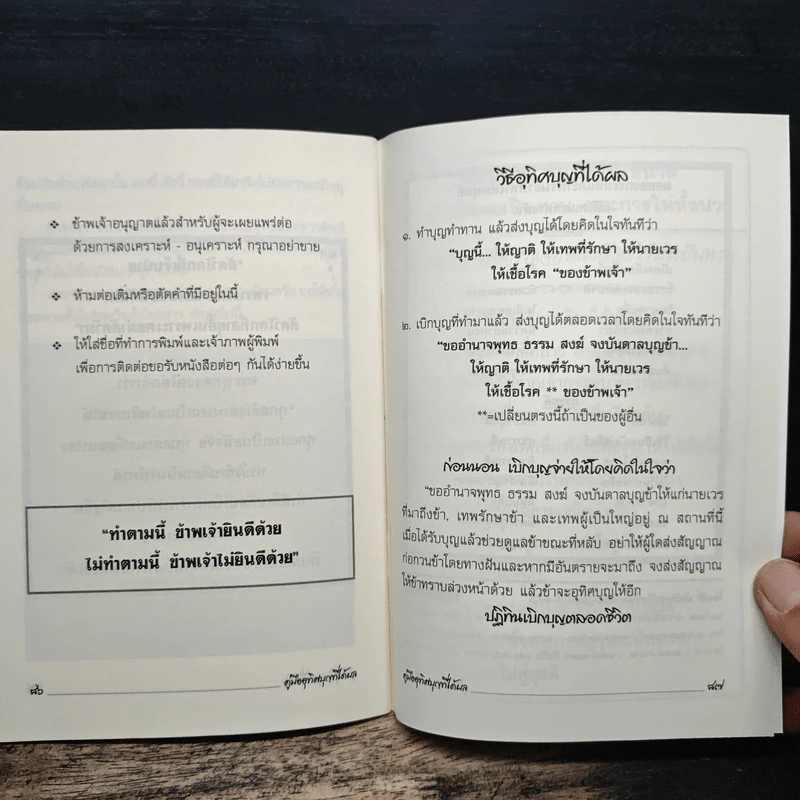 ❖ ข้าพเจ้าอนุญาตแล้วสำหรับผู้จะเผยแพร่ต่อ
ด้วยการสงเคราะห์ - อนุเคราะห์ กรุณาอย่าขาย
❖ ห้ามต่อเติมหรือตัดคำที่มีอยู่ในนี้
❖ ให้ใส่ชื่อที่ทำการพิมพ์และเจ้าภาพผู้พิมพ์
เพื่อการติดต่อขอรับหนังสือต่อๆ กันได้ง่ายขึ้น
“ทำตามนี้ ข้าพเจ้ายินดีด้วย
ไม่ทำตามนี้ ข้าพเจ้าไม่ยินดีด้วย”
๘๖ คู่มืออุทิศบุญที่ได้ผล
วิธีอุทิศบุญที่ได้ผล
๑. ทำบุญทำทาน แล้วส่งบุญได้โดยคิดในใจทันทีว่า
“บุญนี้... ให้ญาติ ให้เทพที่รักษา ให้นายเวร
ให้เชื้อโรค “ของข้าพเจ้า”
๒. เบิกบุญที่ทำมาแล้ว ส่งบุญได้ตลอดเวลาโดยคิดในใจทันทีว่า
“ขออำนาจพุทธ ธรรม สงฆ์ จงบันดาลบุญข้า...
ให้ญาติ ให้เทพที่รักษา ให้นายเวร
ให้เชื้อโรค ** ของข้าพเจ้า”
**=เปลี่ยนตรงนี้ถ้าเป็นของผู้อื่น
ก่อนนอน เบิกบุญจ่ายให้โดยคิดในใจว่า
“ขออำนาจพุทธ ธรรม สงฆ์ จงบันดาลบุญข้าให้แก่นายเวร
ที่มาถึงข้า, เทพรักษาข้า และเทพผู้เป็นใหญ่อยู่ ณ สถานที่นี้
เมื่อได้รับบุญแล้วช่วยดูแลข้าขณะที่หลับ อย่าให้ผู้ใดส่งสัญญาณ
ก่อกวนข้าโดยทางฝันและหากมีอันตรายจะมาถึง จงส่งสัญญาณ
ให้ข้าทราบล่วงหน้าด้วย แล้วข้าจะอุทิศบุญให้อีก
ปฏิทินเบิกบุญตลอดชีวิต
คู่มืออุทิศบุญที่ได้ผล ๘๗